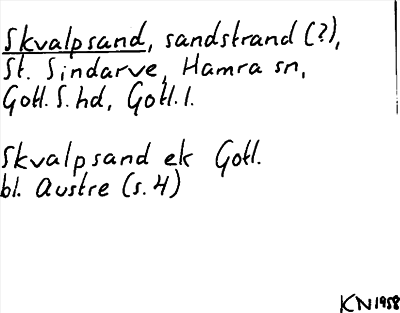 Skvalpsand, sandstrand (?),
St. Sindarve, Hamra sn,
Gotl. S. hd, Gotl. l.
Skvalpsand ek Gotl.
bl. Austre (s. 4)
KN 1958